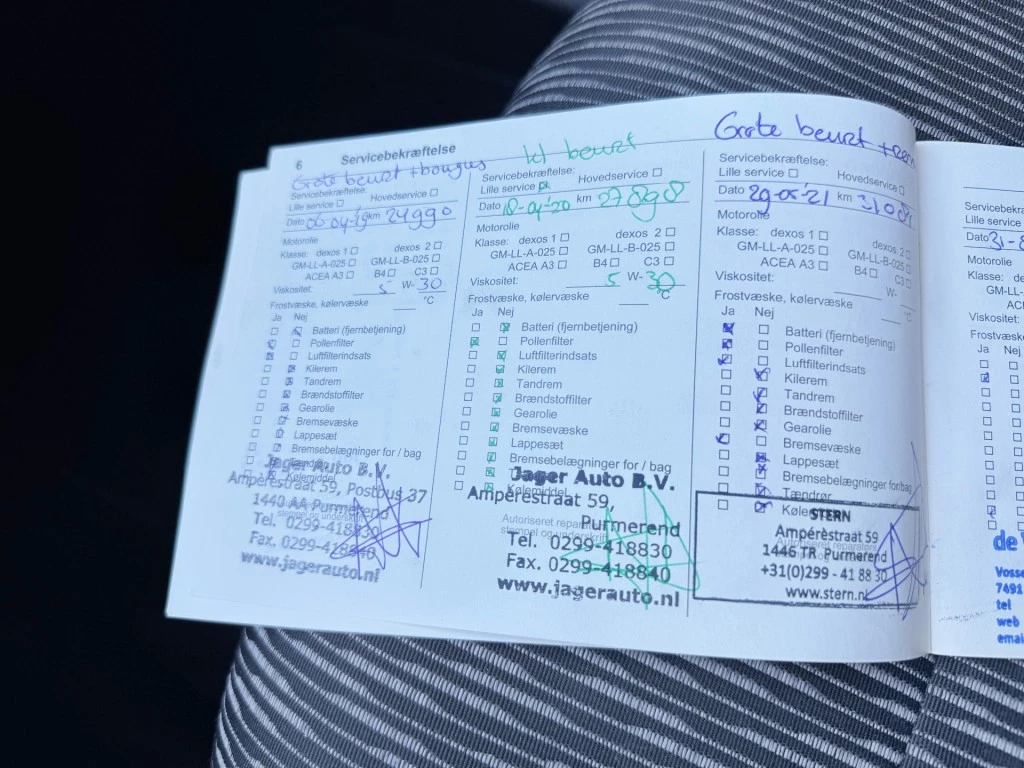 6 Servicebekræftelse
Grote beurt + bougies
Servicebekræftelse:
Lille service Hovedservice
Dato 06-04-19 km 24990
Motorolie
Klasse: dexos 1 dexos 2
GM-LL-A-025 GM-LL-B-025
ACEA A3 B4 C3
Viskositet: 5 W- 30
Frostvæske, kølervæske °C
Ja Nej
Batteri (fjernbetjening)
Pollenfilter
Luftfilterindsats
Kilerem
Tandrem
Brændstoffilter
Gearolie
Bremsevæske
Lappesæt
Bremsebelægninger for / bag
Kølemiddel
Jager Auto B.V.
Ampèrestraat 59, Postbus 37
1440 AA Purmerend
Tel. 0299-418830
Fax. 0299-418840
www.jagerauto.nl
kl beurt
Servicebekræftelse:
Lille service Hovedservice
Dato km 27898
Motorolie
Klasse: dexos 1 dexos 2
GM-LL-A-025 GM-LL-B-025
ACEA A3 B4 C3
Viskositet: 5 W- 30
Frostvæske, kølervæske °C
Ja Nej
Batteri (fjernbetjening)
Pollenfilter
Luftfilterindsats
Kilerem
Tandrem
Brændstoffilter
Gearolie
Bremsevæske
Lappesæt
Bremsebelægninger for / bag
Kølemiddel
Jager Auto B.V.
Ampèrestraat 59,
Purmerend
Tel. 0299-418830
Fax. 0299-418840
www.jagerauto.nl
Grote beurt +rem
Servicebekræftelse:
Lille service Hovedservice
Dato 29-05-21 km
Motorolie
Klasse: dexos 1 dexos 2
GM-LL-A-025 GM-LL-B-025
ACEA A3 B4 C3
Viskositet: W-
Frostvæske, kølervæske °C
Ja Nej
Batteri (fjernbetjening)
Pollenfilter
Luftfilterindsats
Kilerem
Tandrem
Brændstoffilter
Gearolie
Bremsevæske
Lappesæt
Bremsebelægninger for/bag
Tændrør
STERN
Ampèrestraat 59
1446 TR Purmerend
+31(0)299 - 41 88 30
www.stern.nl
Servicebekræf
Lille service
Dato 31-8
Motorolie
Klasse: dex
GM-L
ACE
Viskositet:
Frostvæske,
Ja Nej
de
Vosse
7491
tel
web
email